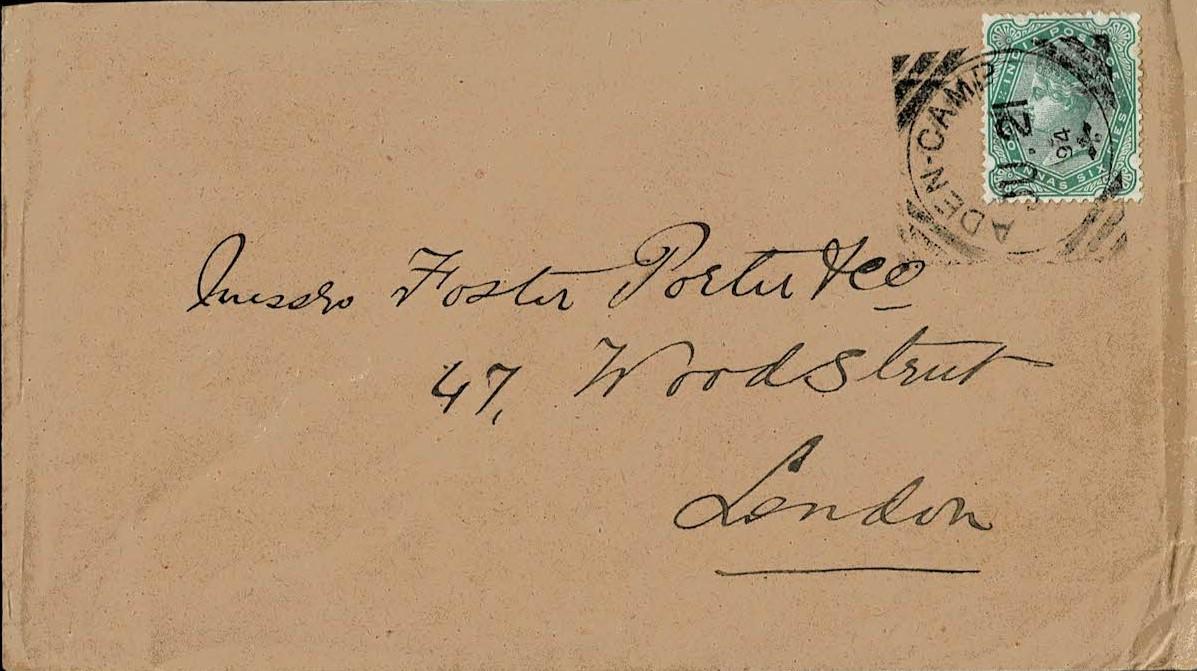 INDIA POSTAGE
ANNAS SIX PIES
ADEN-CAMP
JU. 21
94
Messrs Foster Porter & Co
47, Wood Street
London